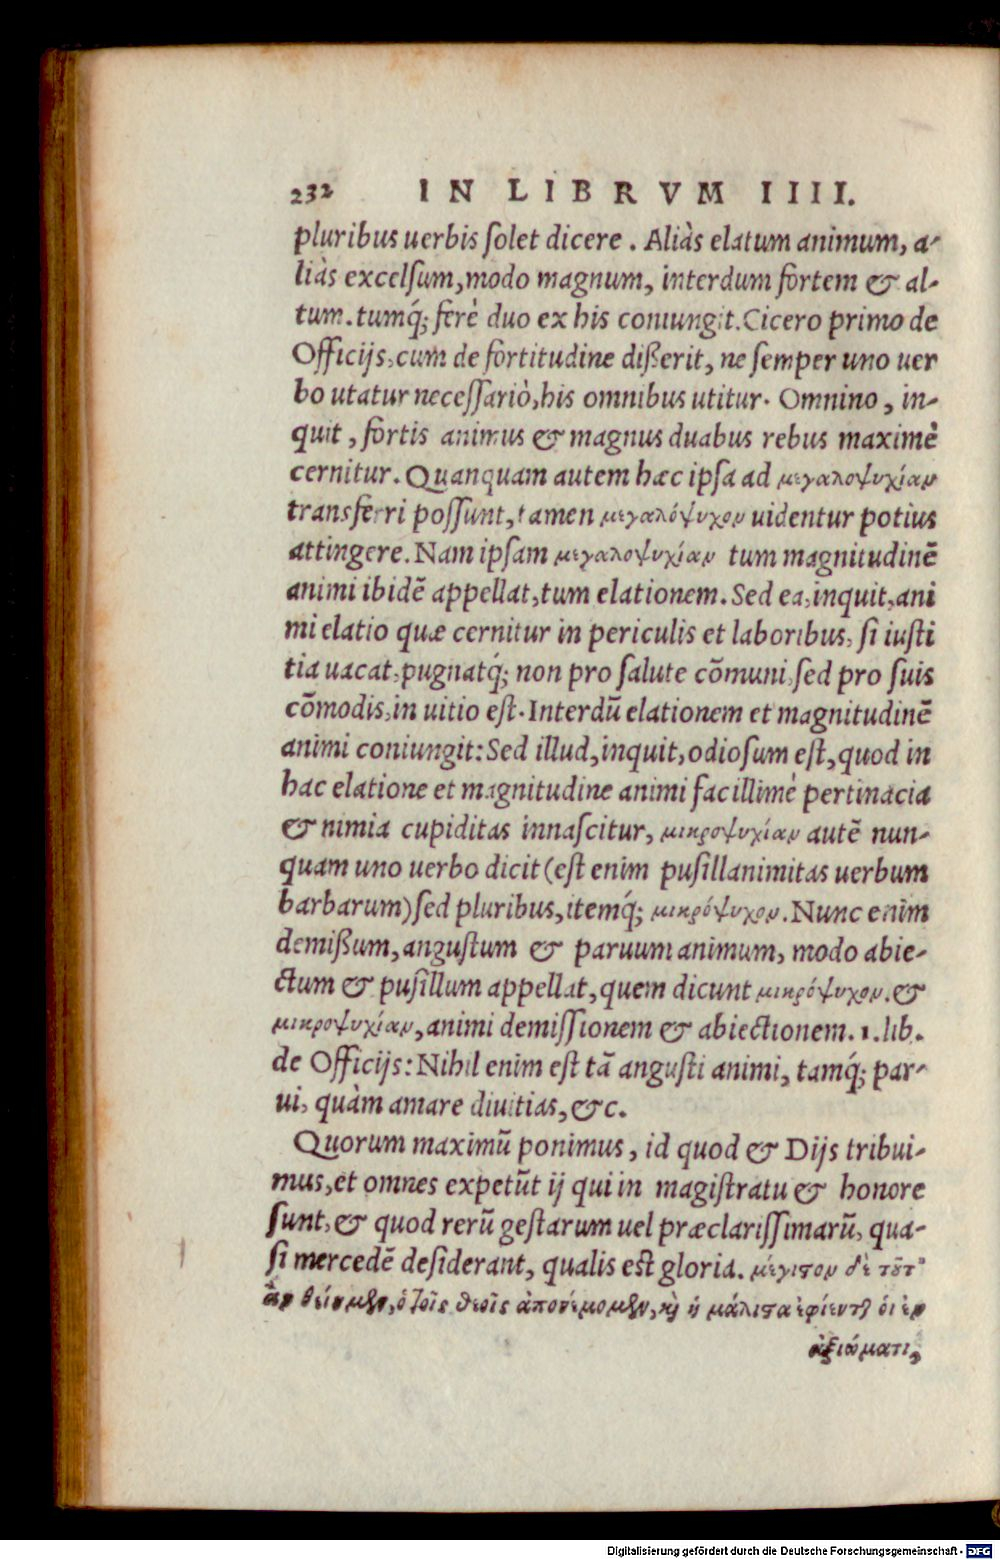 232 IN LIBRVM IIII.
pluribus uerbis ſolet dicere . Aliàs elatum animum, a-
liàs excelſum, modo magnum, interdum fortem & al-
tum. tumq́; ferè duo ex his coniungit. Cicero primo de
Officijs, cum de fortitudine diſſerit, ne ſemper uno uer
bo utatur neceſſariò, his omnibus utitur. Omnino, in-
quit, fortis animus & magnus duabus rebus maximè
cernitur. Quanquam autem hæc ipſa ad μεγαλοψυχίαν
transferri poſſunt, tamen μεγαλόψυχον uidentur potius
attingere. Nam ipſam μεγαλοψυχίαν tum magnitudinē
animi ibidē appellat, tum elationem. Sed ea, inquit, ani
mi elatio quæ cernitur in periculis et laboribus, ſi iuſti
tia uacat, pugnatq́; non pro ſalute cōmuni, ſed pro ſuis
cōmodis, in uitio eſt. Interdū elationem et magnitudinē
animi coniungit: Sed illud, inquit, odioſum eſt, quod in
hac elatione et magnitudine animi facillimè pertinacia
& nimia cupiditas innaſcitur, μικροψυχίαν autē nun-
quam uno uerbo dicit (eſt enim puſillanimitas uerbum
barbarum) ſed pluribus, itemq́; μικρόψυχον. Nunc enim
demiſſum, anguſtum & paruum animum, modo abie-
ctum & puſillum appellat, quem dicunt μικρόψυχον. &
μικροψυχίαν, animi demiſſionem & abiectionem. 1. lib.
de Officijs: Nihil enim eſt tā anguſti animi, tamq́; par-
ui, quàm amare diuitias, &c.
Quorum maximū ponimus, id quod & Dijs tribui-
mus, et omnes expetūt ij qui in magiſtratu & honore
ſunt, & quod rerū geſtarum uel præclariſſimarū, qua-
ſi mercedē deſiderant, qualis eſt gloria. μέγιστον δὲ τοῦτ'
ἂν θείημεν, ὃ τοῖς θεοῖς ἀπονέμομεν, καὶ οὗ μάλιστα ἐφίενται οἱ ἐν
ἀξιώματι,
Digitalisierung gefördert durch die Deutsche Forschungsgemeinschaft - DFG